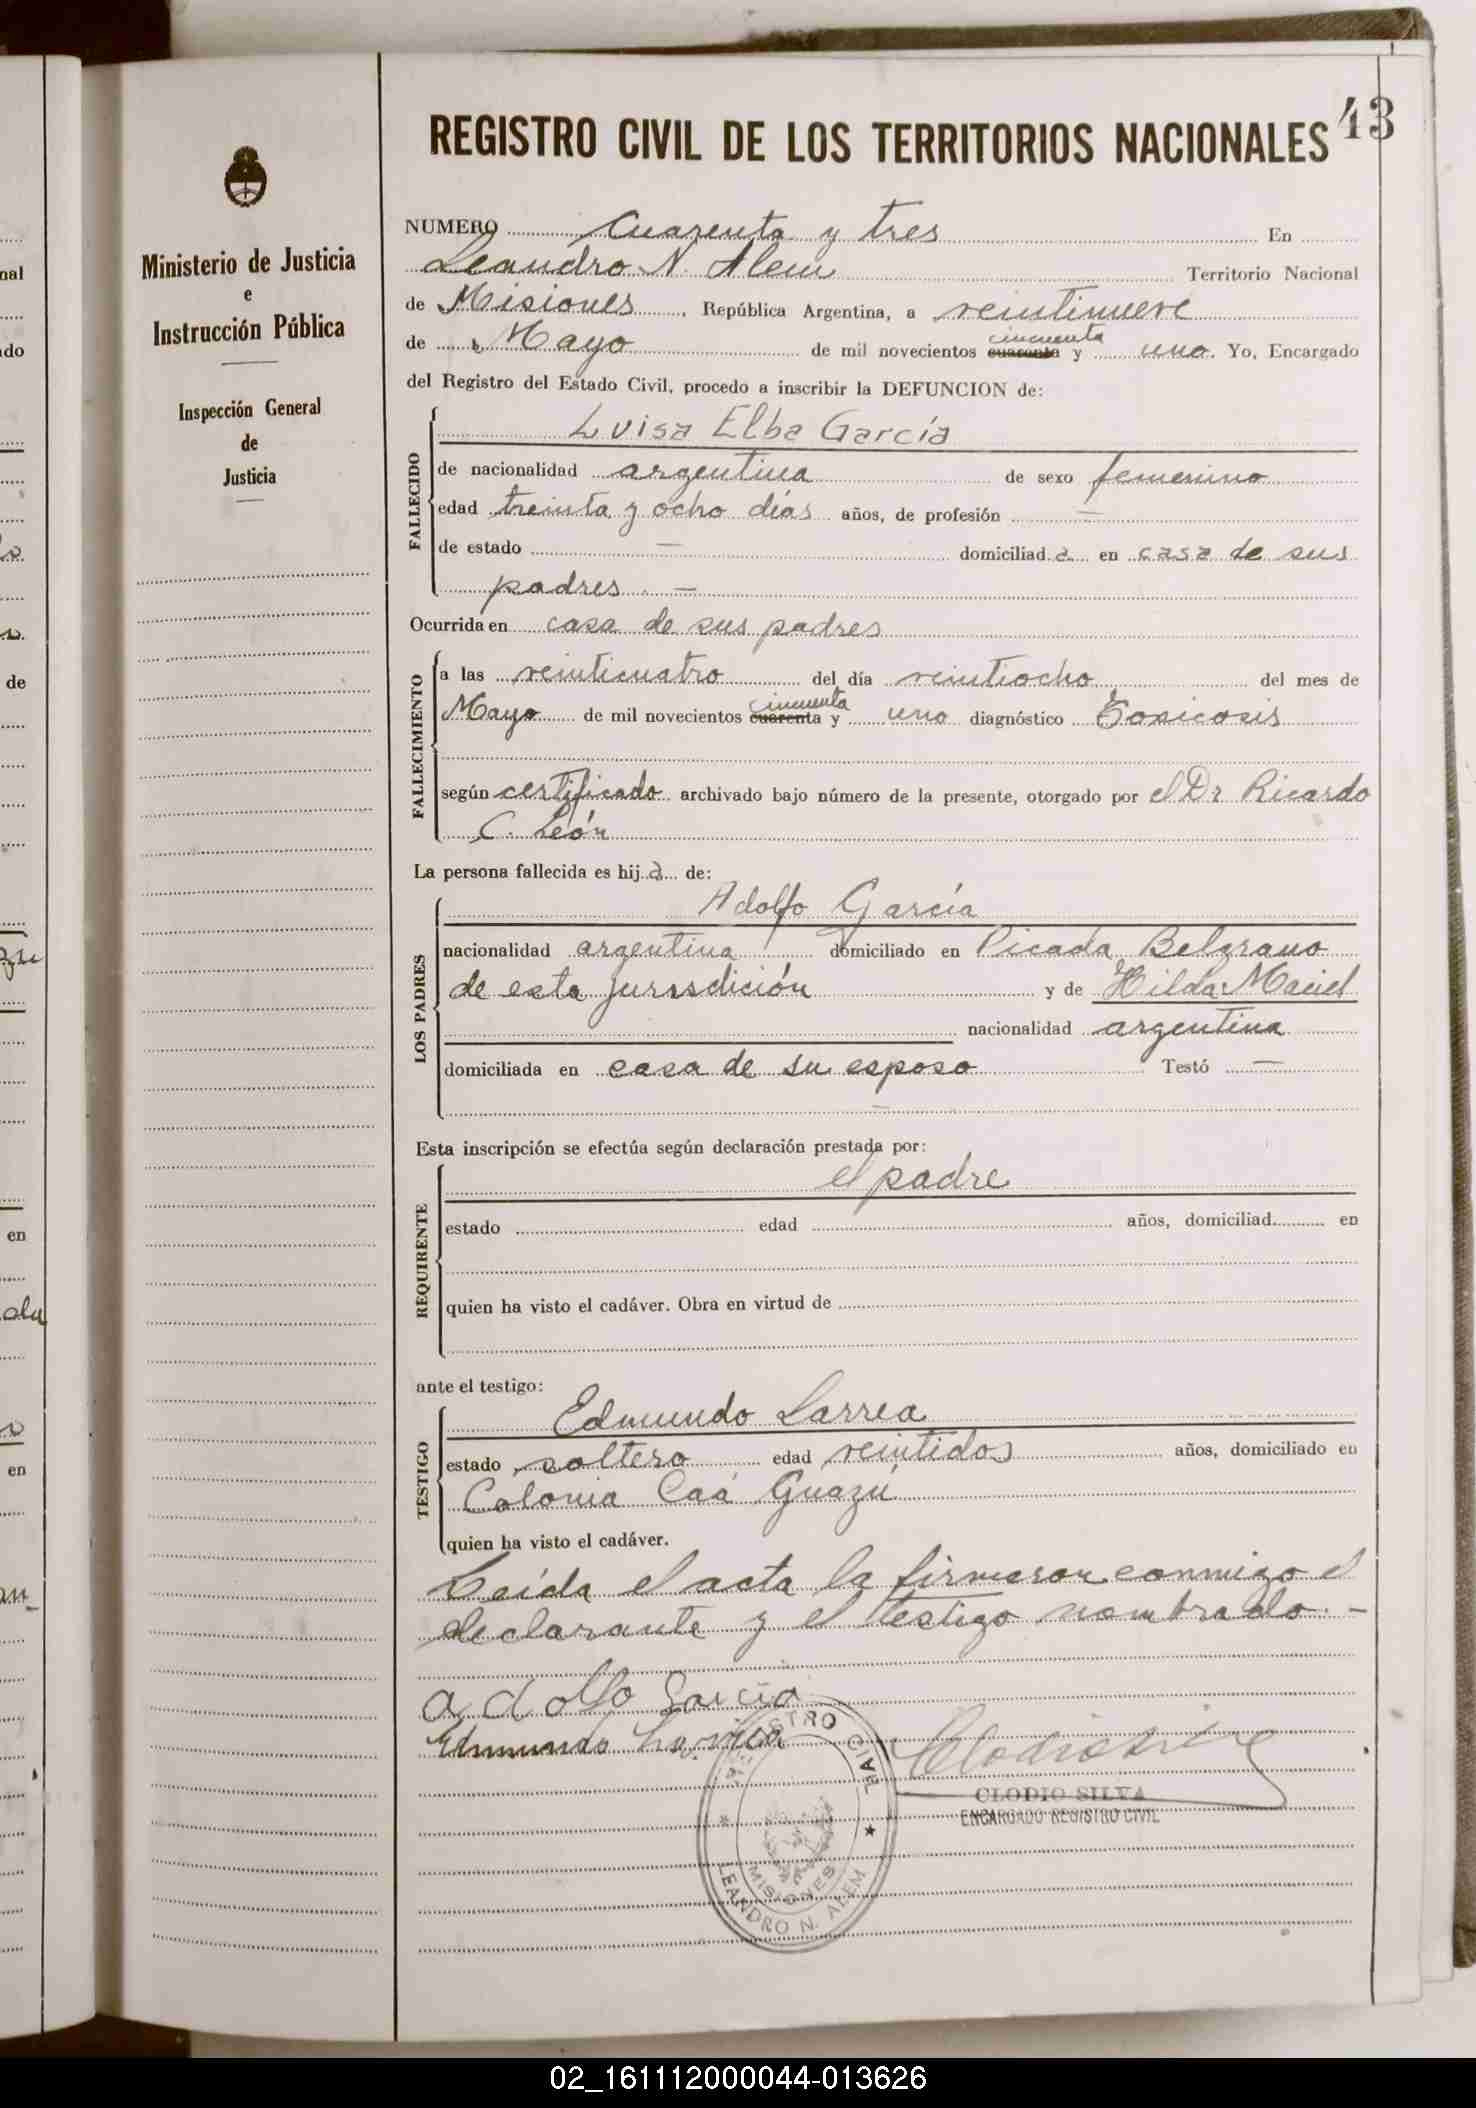 43
REGISTRO CIVIL DE LOS TERRITORIOS NACIONALES
Ministerio de Justicia
e
Instrucción Pública
Inspección General
de
Justicia
NUMERO Cuarenta y tres En
Leandro N. Alem Territorio Nacional
de Misiones, República Argentina, a veintinueve
de Mayo de mil novecientos cuarenta cincuenta y uno. Yo, Encargado
del Registro del Estado Civil, procedo a inscribir la DEFUNCION de:
FALLECIDO
Luisa Elba García
de nacionalidad argentina de sexo femenino
edad treinta y ocho días años, de profesión —
de estado — domiciliad a en casa de sus
padres. —
Ocurrida en casa de sus padres
FALLECIMIENTO
a las veinticuatro del día veintiocho del mes de
Mayo de mil novecientos cuarenta cincuenta y uno diagnóstico Toxicosis
según certificado archivado bajo número de la presente, otorgado por el Dr Ricardo
C. León
La persona fallecida es hij a de:
LOS PADRES
Adolfo García
nacionalidad argentina domiciliado en Picada Belgrano
de esta jurisdición y de Hilda Maciel
nacionalidad argentina
domiciliada en casa de su esposo Testó —
Esta inscripción se efectúa según declaración prestada por:
REQUIRENTE
el padre
estado edad años, domiciliad en
quien ha visto el cadáver. Obra en virtud de
ante el testigo:
TESTIGO
Edmundo Larrea
estado soltero edad veintidos años, domiciliado en
Colonia Caá Guazú
quien ha visto el cadáver.
Leída el acta la firmaron conmigo el
declarante y el testigo nombrado. —
adolfo Garcia
Edmundo Larrea
Clodio Silva
CLODIO SILVA
ENCARGADO REGISTRO CIVIL
REGISTRO CIVIL
MISIONES
LEANDRO N. ALEM
nal
do
de
en
en
02_161112000044-013626